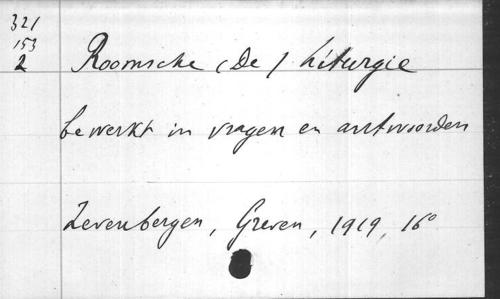 321
153
2
Roomsche (De) Liturgie
bewerkt in vragen en antwoorden
Zevenbergen, Greven, 1919, 16°